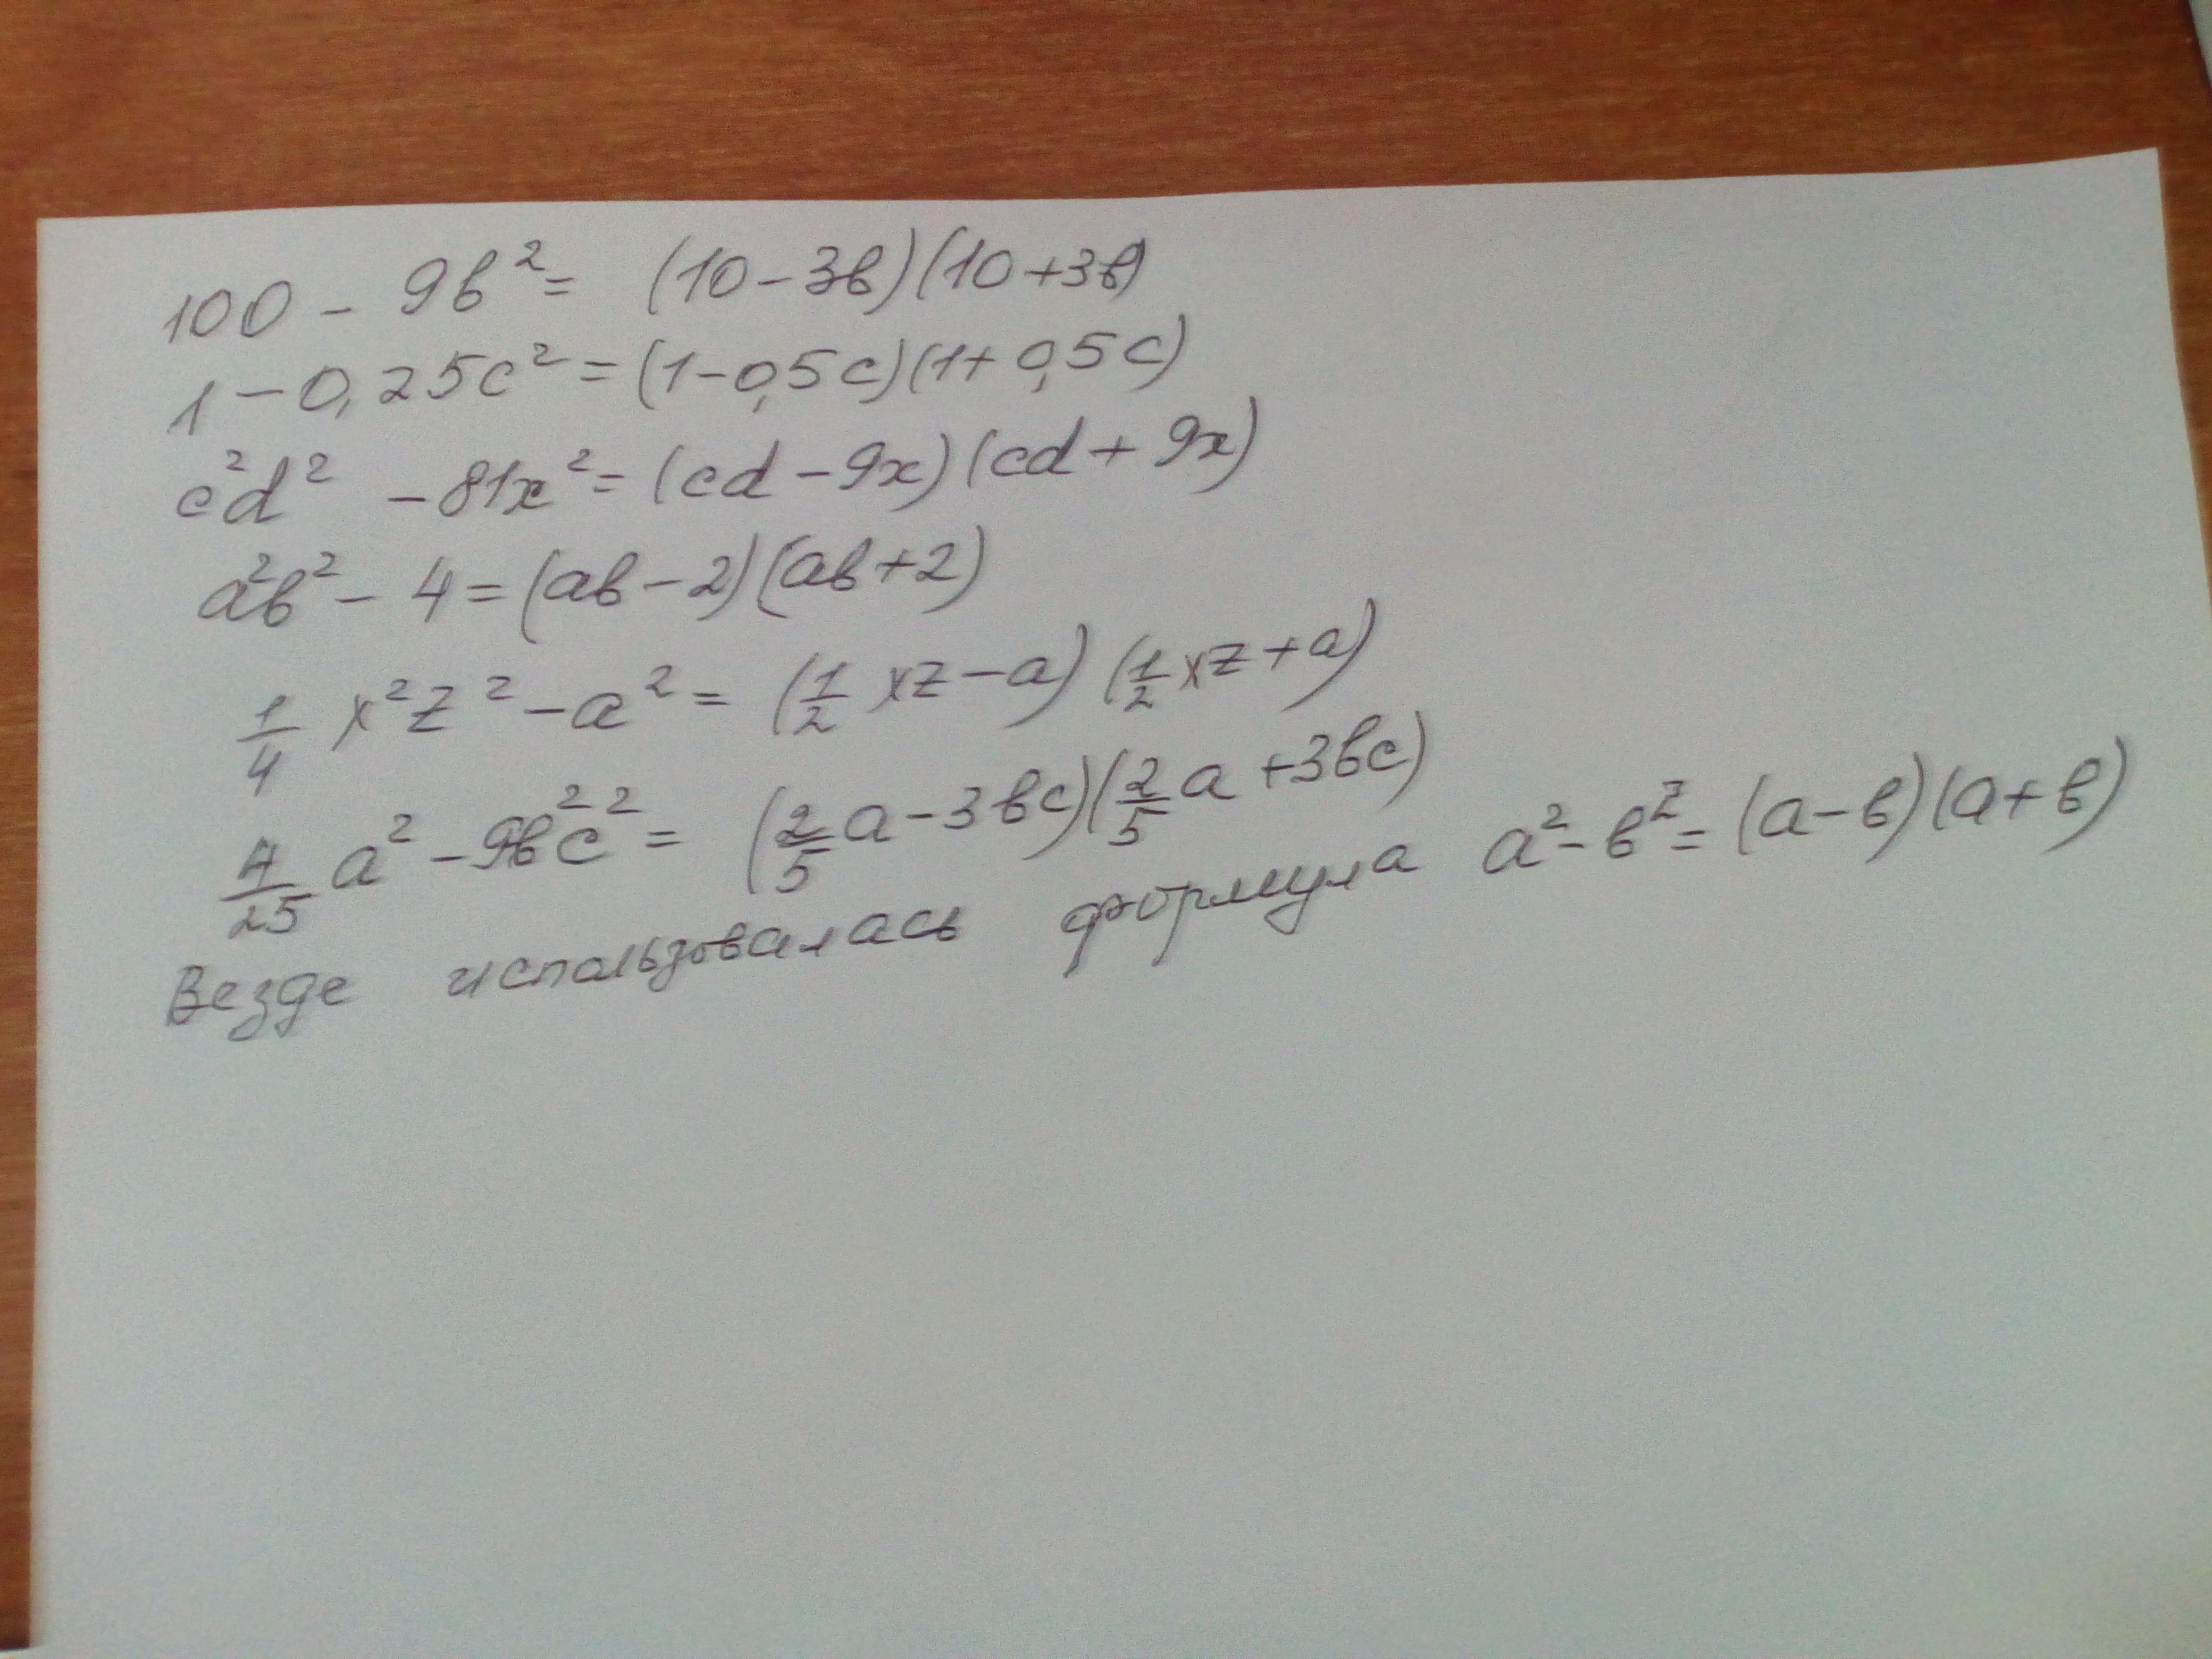 100 - 9в² = (10 - 3в)(10 + 3в)
1 - 0,25c² = (1 - 0,5c)(1 + 0,5c)
c²d² - 81x² = (cd - 9x)(cd + 9x)
a²в² - 4 = (aв - 2)(aв + 2)
1/4 x²z² - a² = (1/2 xz - a)(1/2 xz + a)
4/25 a² - 9в²c² = (2/5 a - 3вc)(2/5 a + 3вc)
Везде использовалась формула a² - в² = (a - в)(a + в)